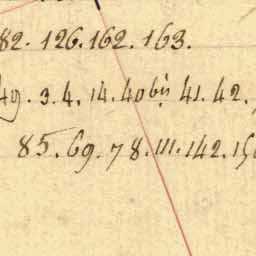 82. 126. 162. 163.
49. 3. 4. 14. 40 bij 41. 42.
85. 69. 78. 111. 142. 15